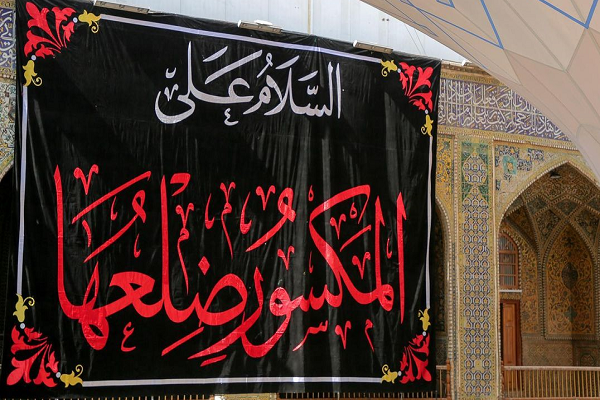 السلام علی
المکسور ضلعها